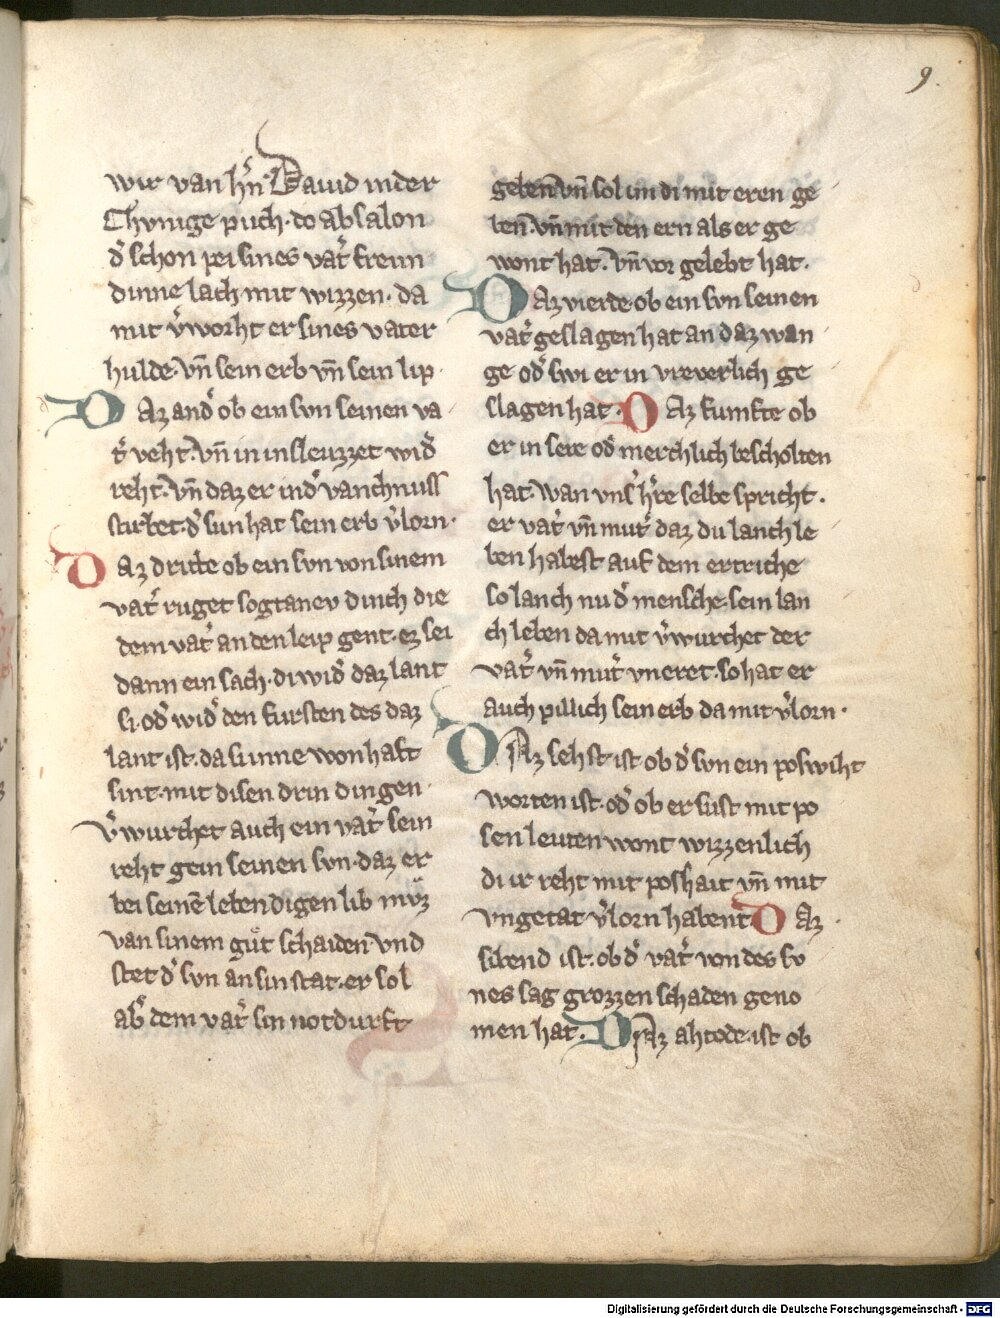 9.
wir van hr̄n Dauid in der
Chunige puch· do absalon
d͛ schon pei sines vat͛ freun
dinne lach mit wizzen· da
mit v͛worht er sines vater
hulde· vn̄ sein erb vn̄ sein lip·
Daz and͛ ob ein svn seinen va
t͛ veht· vn̄ in in sleuzzet wid͛
reht· vn̄ daz er in d͛ vanchnuss
stirbet· d͛ sun hat sein erb v͛lorn·
Daz dritte ob ein svn von sinem
vat͛ ruget sogtanev dinch die
dem vat͛ an den leip gent· ez sei
dann ein sach· di wid͛ daz lant
si· od͛ wid͛ den fursten des daz
lant ist· da si inne wonhaft
sint· mit disen drin dingen
v͛wurchet auch ein vat͛ sein
reht gein seinen svn· daz er
bei seinē lebendigen lib mvͦz
van sinem guͦt schaiden· vnd
stet d͛ svn an sin stat· er sol
ab͛ dem vat͛ sin notdurft
geben· vn̄ sol im di mit eren ge
ben· vn̄ mit den ern als er ge
wont hat· vn̄ vor gelebt hat·
Daz vierde· ob ein svn seinen
vat͛ geslagen hat an daz wan
ge od͛ swi er in vreverlich ge
slagen hat· Daz fumfte ob
er in sere od͛ merchlich bescholten
hat· wan vns͛ h͛re selbe spricht·
er vat͛ vn̄ mut͛ daz du lanch le
ben habest auf dem ertriche
so lanch nu d͛ mensche· sein lan
ch leben da mit v͛wurchet der
vat͛ vn̄ mut͛ vneret· so hat er
auch pillich sein erb da mit v͛lorn·
Daz sehst ist ob d͛ svn ein poswiht
worten ist· od͛ ob er sust mit po
sen leuten wont wizzenlich
di ir reht mit poshait vn̄ mit
vngetat v͛lorn habent· Daz
sibend ist· ob d͛ vat͛ von des sv
nes sag grozzen schaden geno
men hat· Daz ahtode· ist ob
Digitalisierung gefördert durch die Deutsche Forschungsgemeinschaft - DFG